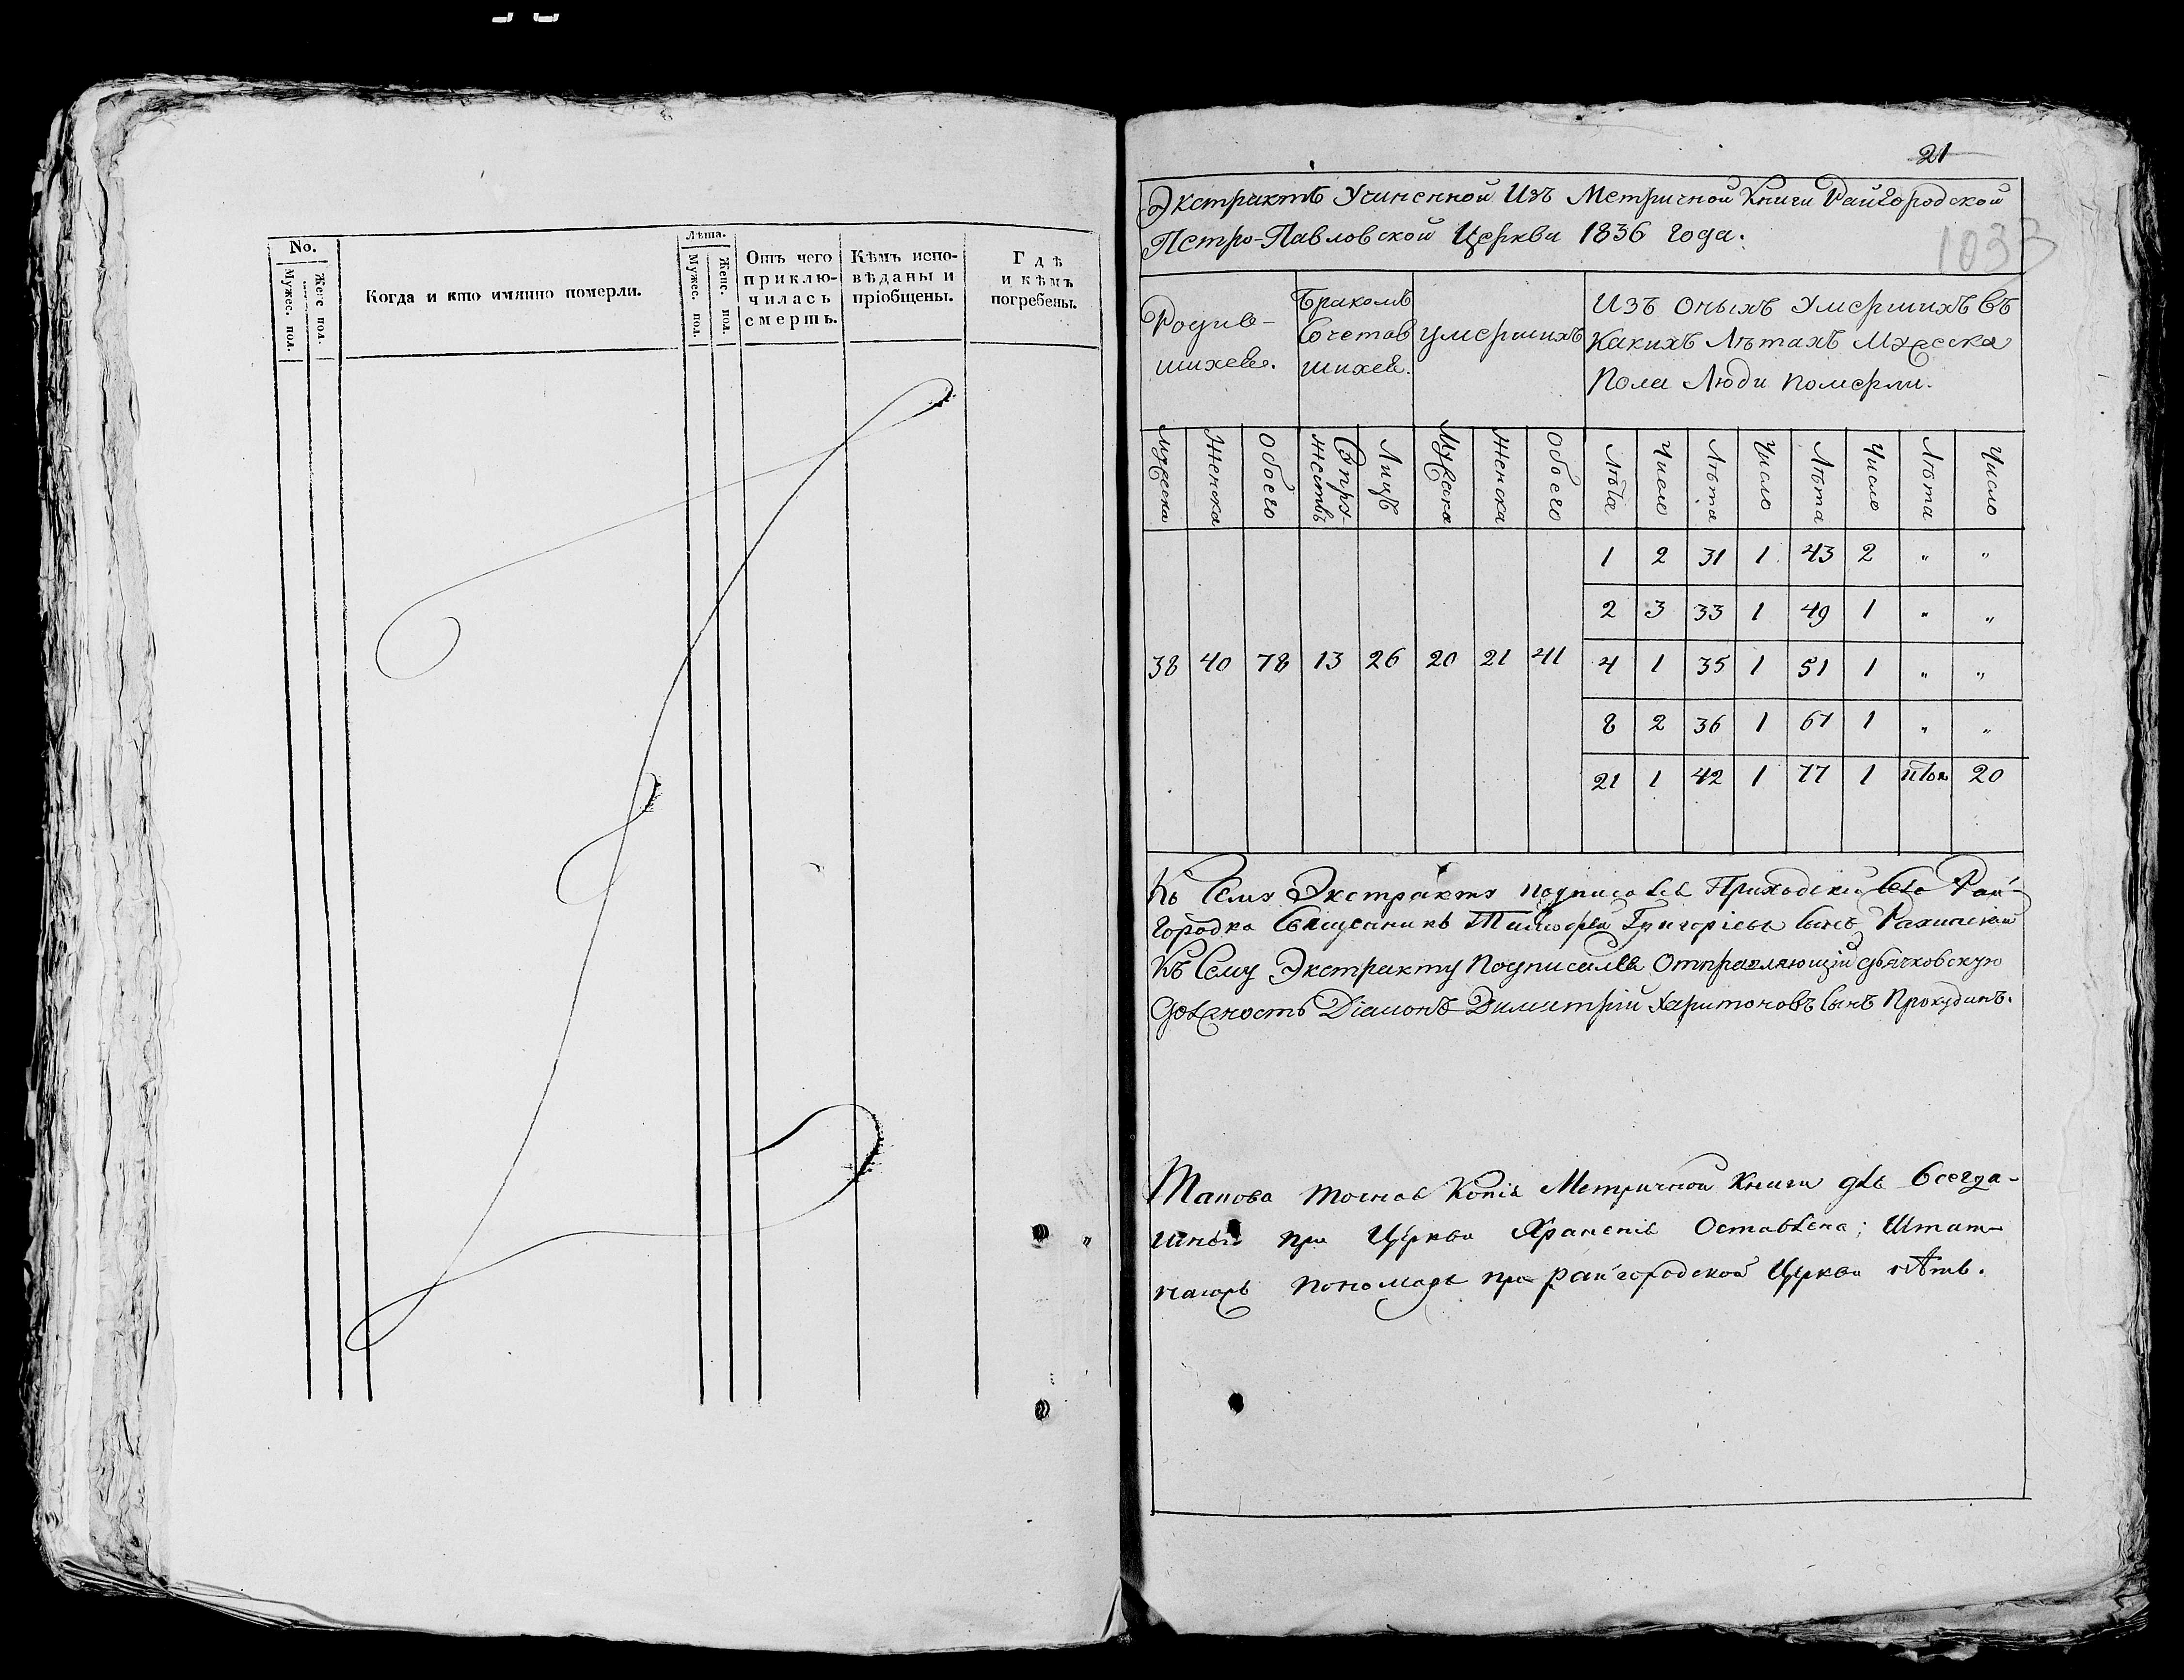 No.
Мужес. пол.
Женс. пол.
Когда и кто имянно померли.
Лѣта.
Мужес. пол.
Женс. пол.
Отъ чего
приклю-
чилась
смерть.
Кѣмъ испо-
вѣданы и
пріобщены.
Гдѣ
и кѣмъ
погребены.
21
1033
Экстрактъ Учиненной Изъ Метричной Книги Райгородской
Петро-Павловской Церкви 1836 года.
Родив-
шихся.
Бракомъ
Сочетав
шихся.
умершихъ
Изъ оныхъ Умершихъ въ
Какихъ Лѣтахъ Мужеска
Пола Люди померли.
Мужеска
Женска
Обоего
Супру-
жествъ
Лицъ
Мужеска
Женска
Обоего
Лѣта
Число
Лѣта
Число
Лѣта
Число
Лѣта
Число
1 2 31 1 43 2 " "
2 3 33 1 49 1 " "
38 40 78 13 26 20 21 41 4 1 35 1 51 1 " "
8 2 36 1 67 1 " "
21 1 42 1 77 1 20
Къ Сему Экстракту подписался Приходскій Села Рай-
городка Священникъ Тимофей Григоріевъ сынъ
Къ Сему Экстракту Подписался Отправляющій дьячковскую
должность Діаконъ Димитрій Харитоновъ сынъ Прокудинъ.
Такова точная Копія Метричной Книги для всегда-
шняго при Церкви Храненія Оставлена; Штат-
наго пономаря при райгородской Церкви нѣтъ.